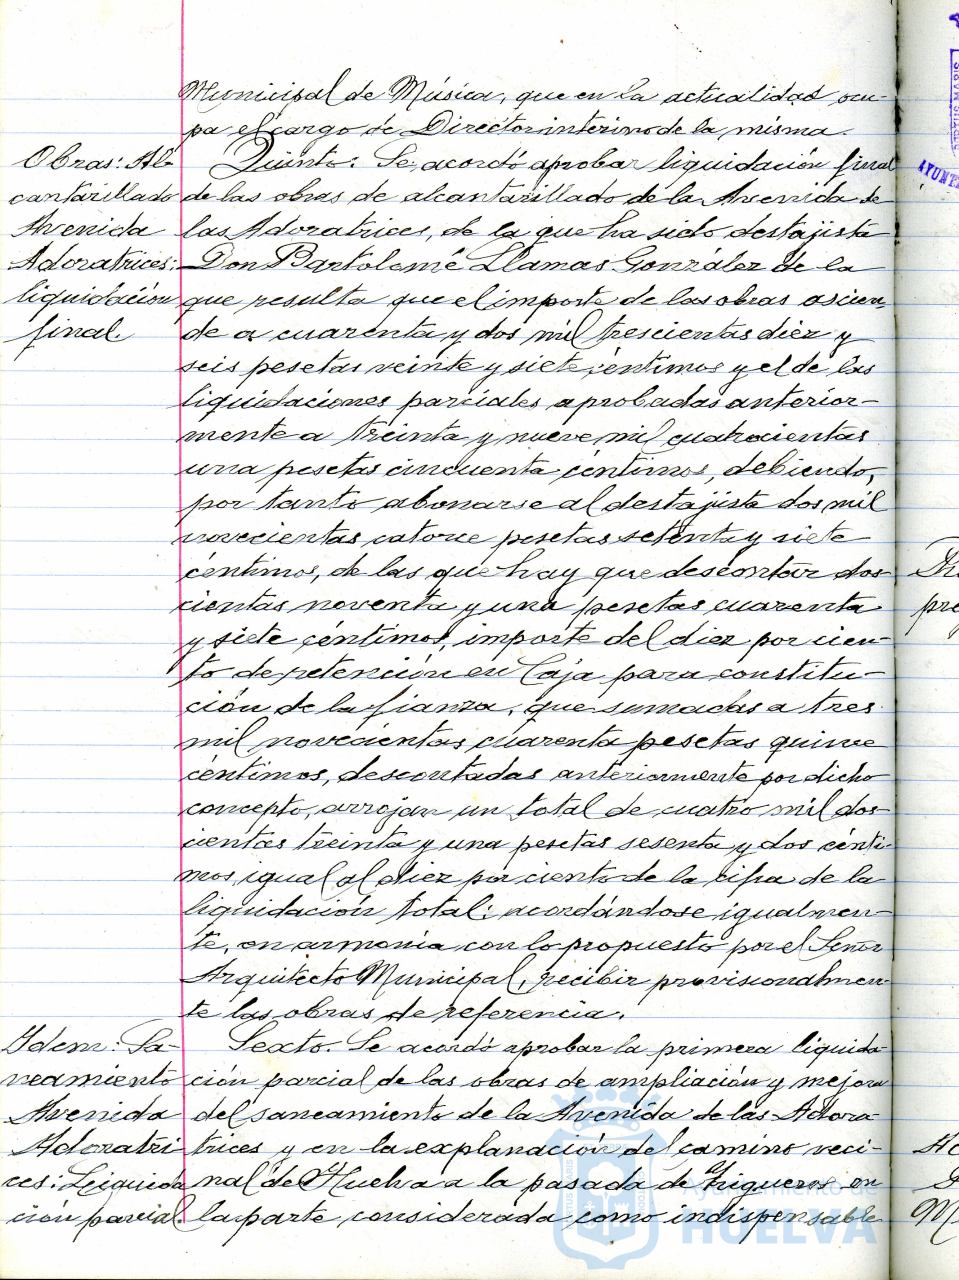 Municipal de Música, que en la actualidad ocu-
pa el cargo de Director interino de la misma.
Obras: Al-
cantarillado
Avenida
Adoratrices:
liquidación
final.
Quinto: Se acordó aprobar liquidación final
de las obras de alcantarillado de la Avenida de
las Adoratrices, de la que ha sido destajista
Don Bartolomé Llamas González de la
que resulta que el importe de las obras ascien-
de a cuarenta y dos mil trescientas diez y
seis pesetas veinte y siete céntimos y el de las
liquidaciones parciales aprobadas anterior-
mente a treinta y nueve mil cuatrocientas
una pesetas cincuenta céntimos, debiendo,
por tanto abonarse al destajista dos mil
novecientas catorce pesetas setenta y siete
céntimos, de las que hay que descontar dos-
cientas noventa y una pesetas cuarenta
y siete céntimos, importe del diez por cien-
to de retención en Caja para constitu-
ción de la fianza, que sumadas a tres
mil novecientas cuarenta pesetas quince
céntimos, descontadas anteriormente por dicho
concepto, arrojan un total de cuatro mil dos-
cientas treinta y una pesetas sesenta y dos cénti-
mos, igual al diez por ciento de la cifra de la
liquidación total: acordándose igualmen-
te, en armonía con lo propuesto por el Señor
Arquitecto Municipal, recibir provisionalmen-
te las obras de referencia.
Idem: Sa-
neamiento
Avenida
Adoratri
ces: Liquida
ción parcial.
Sexto. Se acordó aprobar la primera liquida-
ción parcial de las obras de ampliación y mejora
del saneamiento de la Avenida de las Adora-
trices y en la explanación del camino veci-
nal de Huelva a la pasada de Trigueros en
la parte considerada como indispensable
Ayuntamiento de
HUELVA